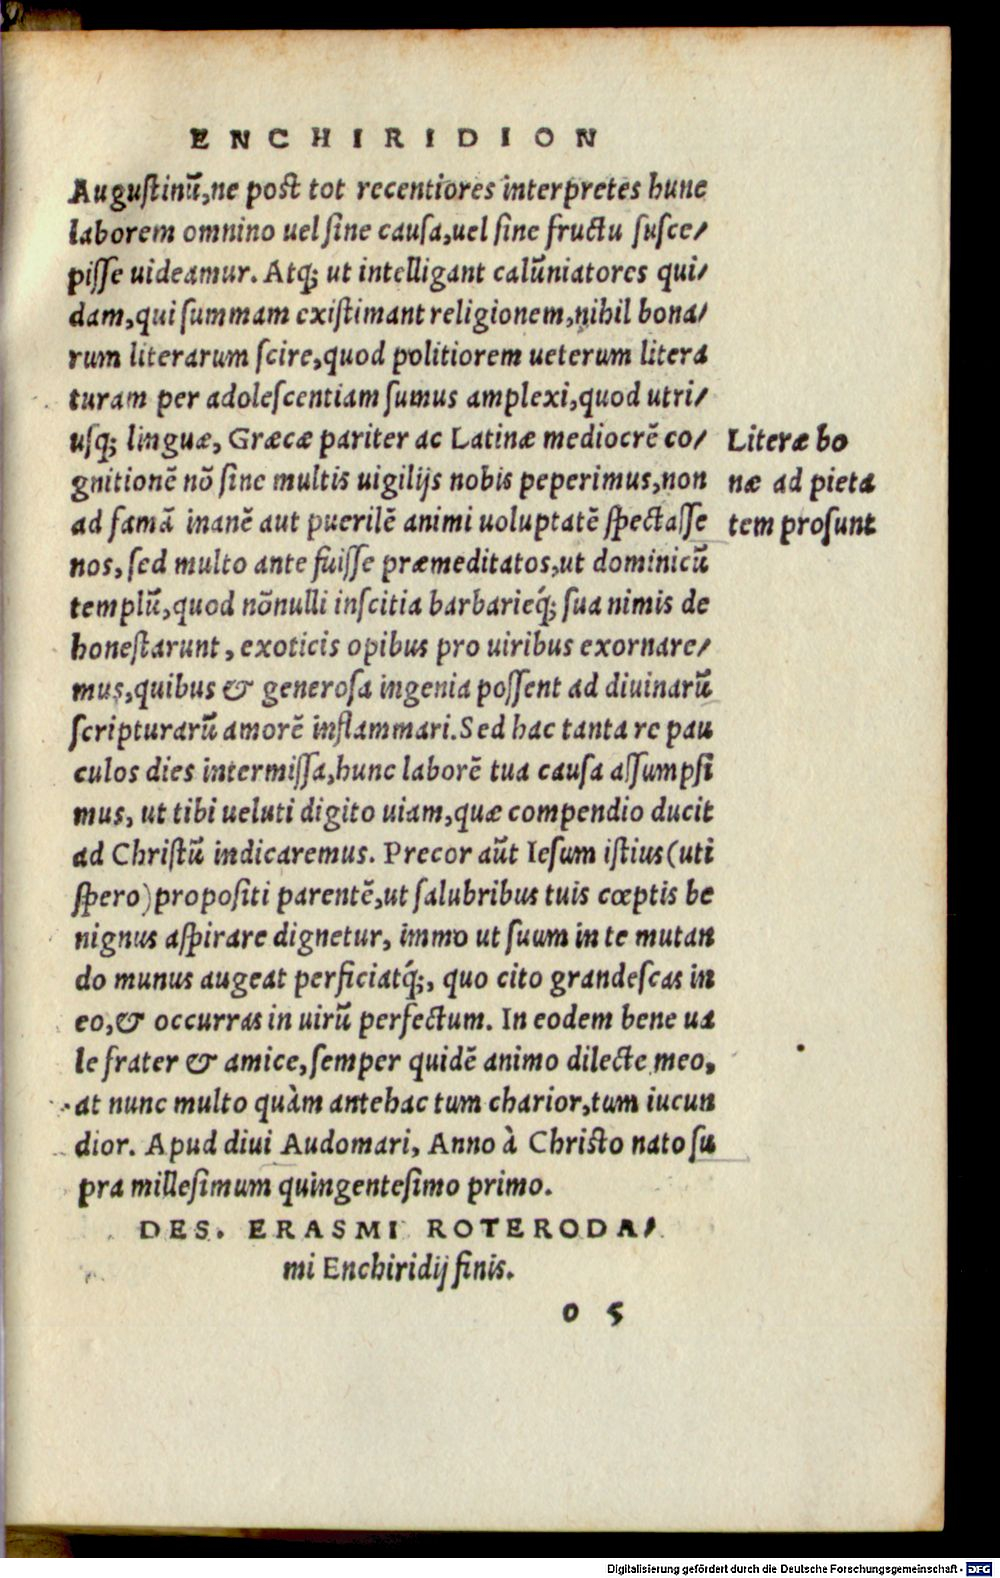 ENCHIRIDION
Augustinū, ne post tot recentiores interpretes hunc
laborem omnino uel sine causa, uel sine fructu susce/
pisse uideamur. Atq; ut intelligant calūniatores qui/
dam, qui summam existimant religionem, nihil bona/
rum literarum scire, quod politiorem ueterum litera
turam per adolescentiam sumus amplexi, quod utri/
usq; linguæ, Græcæ pariter ac Latinæ mediocrē co/
gnitionē nō sine multis uigilijs nobis peperimus, non
ad famā inanē aut puerilē animi uoluptatē spectasse
nos, sed multo ante fuisse præmeditatos, ut dominicū
templū, quod nōnulli inscitia barbarieq́; sua nimis de
honestarunt, exoticis opibus pro uiribus exornare/
mus, quibus & generosa ingenia possent ad diuinarū
scripturarū amorē inflammari. Sed hac tanta re pau
culos dies intermissa, hunc laborē tua causa assumpsi
mus, ut tibi ueluti digito uiam, quæ compendio ducit
ad Christū indicaremus. Precor aūt Iesum istius (uti
spero) propositi parentē, ut salubribus tuis cœptis be
nignus aspirare dignetur, immo ut suum in te mutan
do munus augeat perficiatq́;, quo cito grandescas in
eo, & occurras in uirū perfectum. In eodem bene ua
le frater & amice, semper quidē animo dilecte meo,
at nunc multo quàm antehac tum charior, tum iucun
dior. Apud diui Audomari, Anno à Christo nato su
pra millesimum quingentesimo primo.
DES. ERASMI ROTERODA/
mi Enchiridij finis.
o 5
Literæ bo
næ ad pieta
tem prosunt
Digitalisierung gefördert durch die Deutsche Forschungsgemeinschaft - DFG